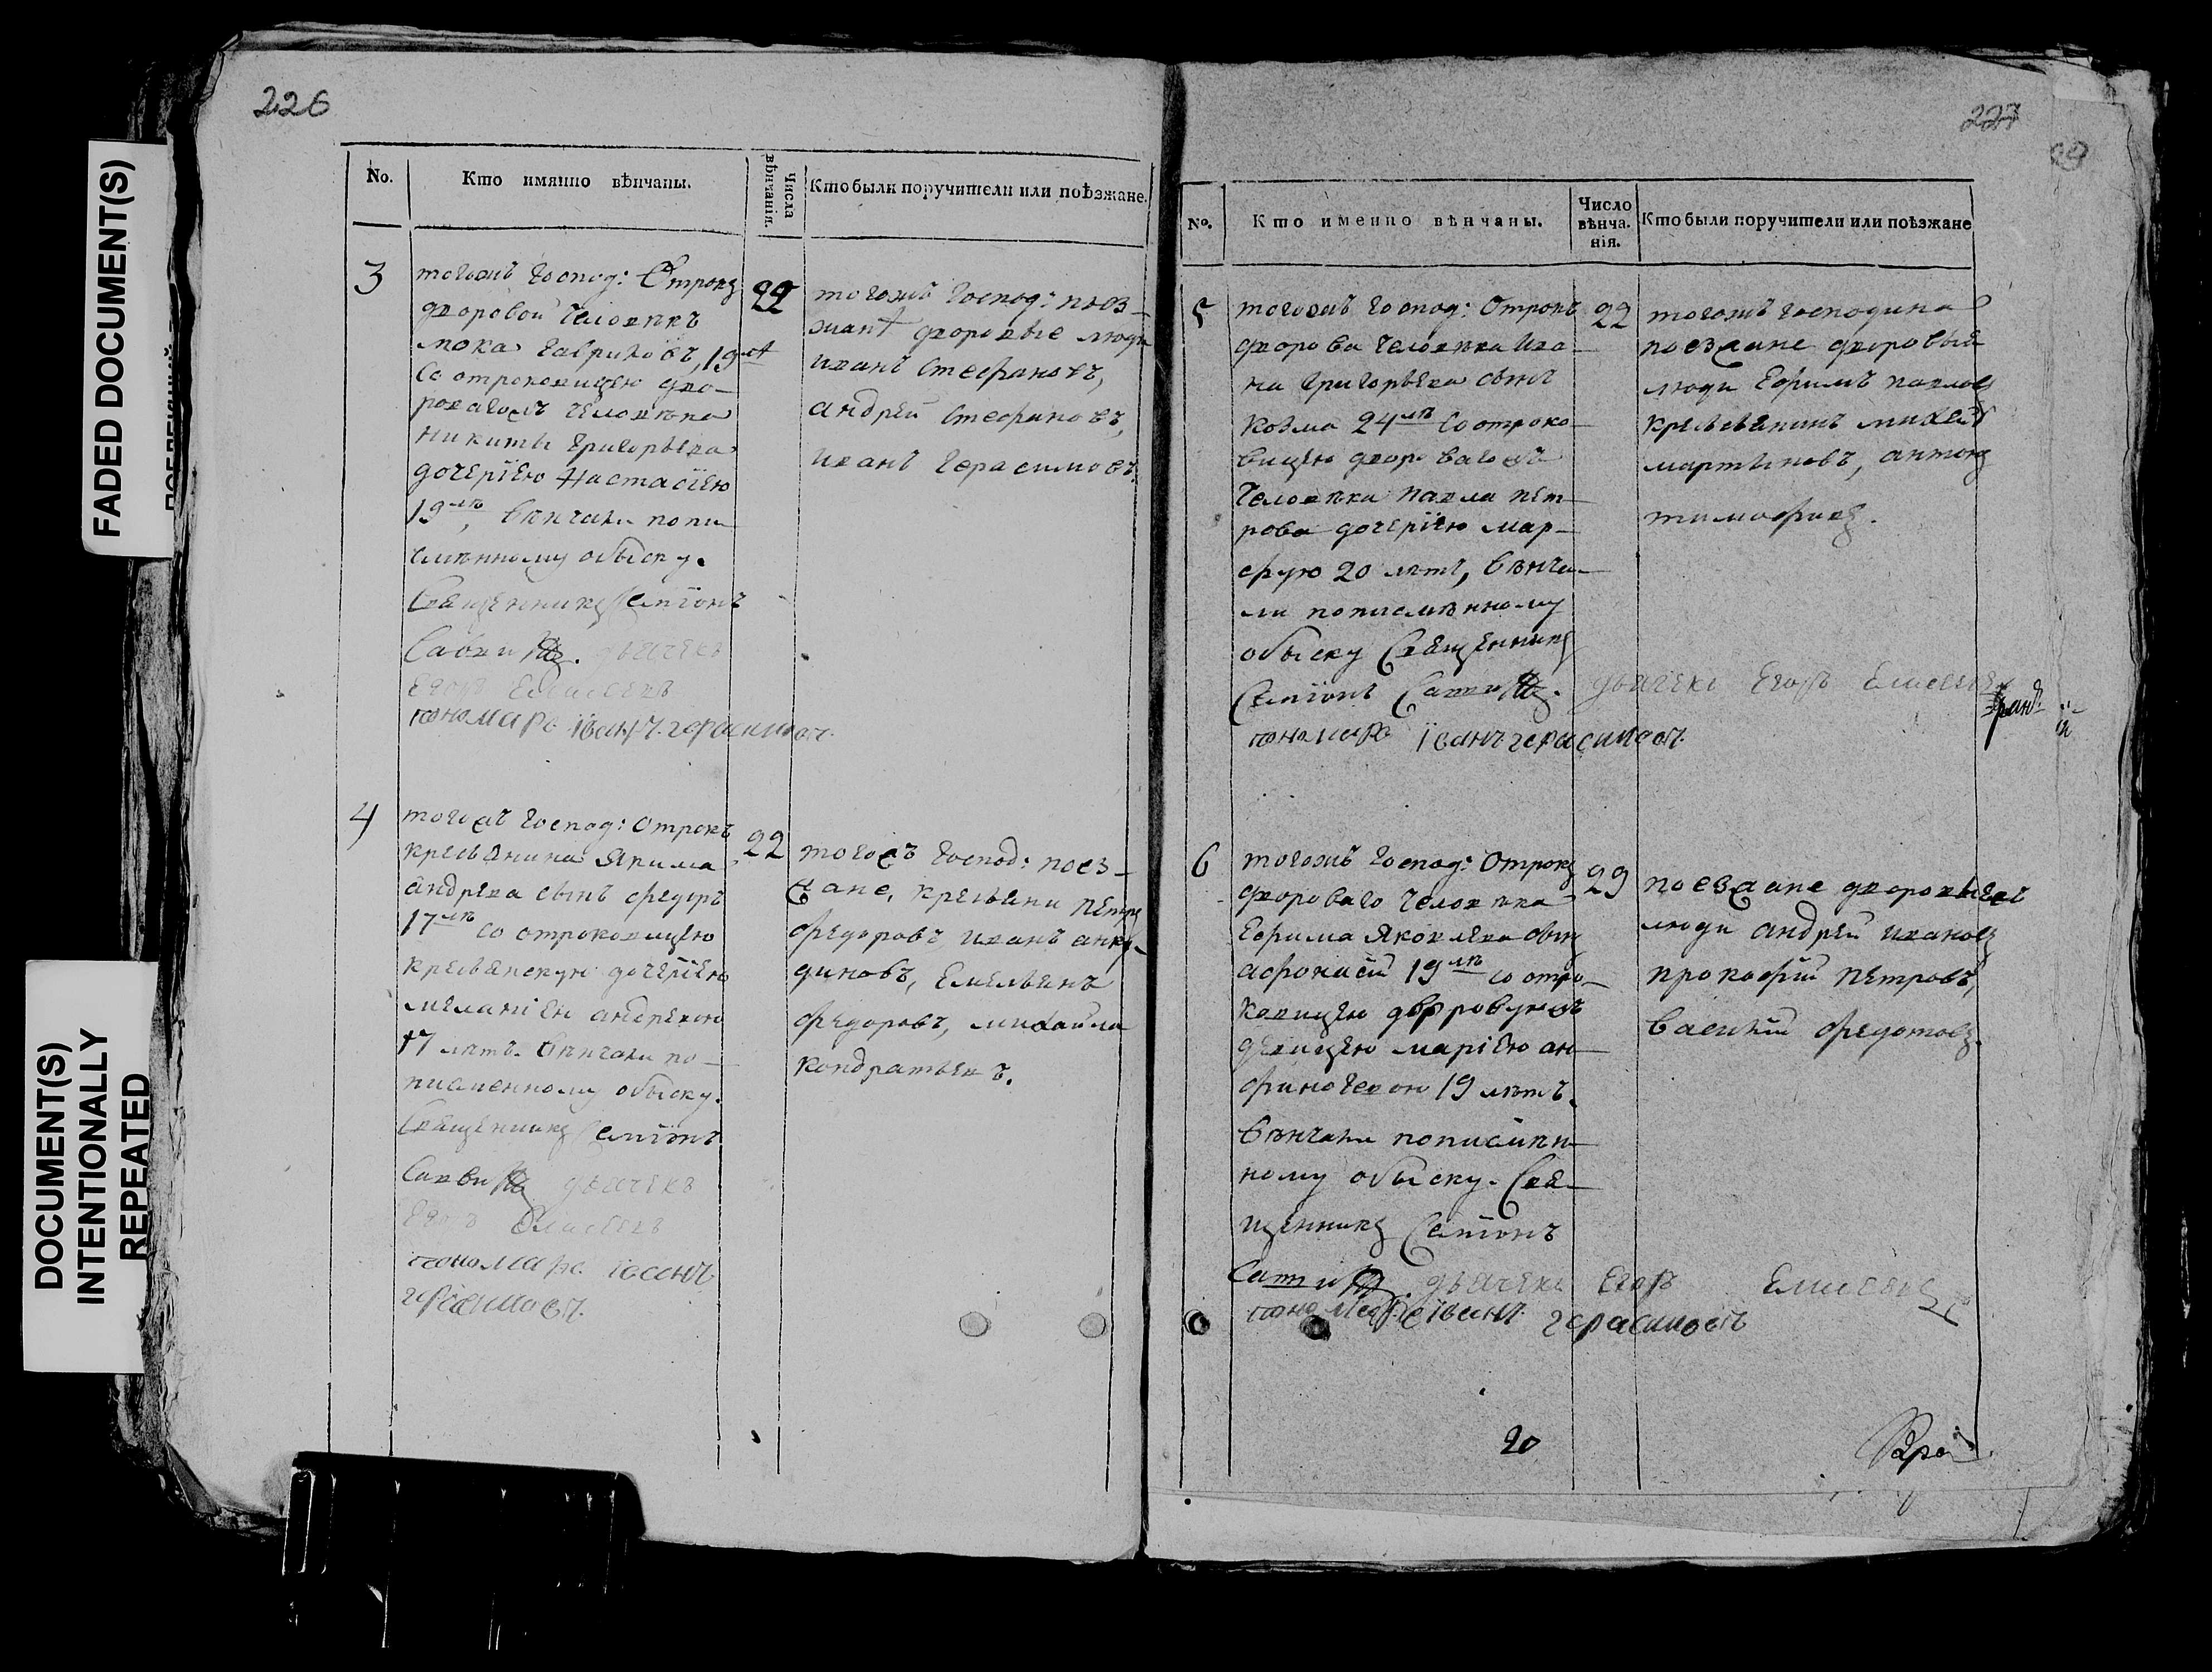 FADED DOCUMENT(S)
DOCUMENT(S)
INTENTIONALLY
REPEATED
226
No.
Кто имянно вѣнчаны.
Числа
вѣнчанія.
Кто были поручители или поѣзжане.
3
тогожъ Господ: Отрокъ
дворовой человѣкъ
Мока Гавриловъ, 19 лѣ
со отроковицею дво-
роваго жъ человѣка
Никиты Григорьева
дочерїею Настасїею
19 лѣ, вѣнчали попи
смѣнному обыску.
Священникъ Семїонъ
Саввинъ. дьячекъ
Егоръ Елисеевъ
пономарь Їванъ Герасимовъ.
22
тогожъ Господ: поез-
жанѣ дворовые люди
иванъ Стефановъ,
андрей Стефановъ,
иванъ Герасимовъ.
4
тогожъ Господ: Отрокъ
крестьянина Якима
андрева сынъ федоръ
17 лѣ со отроковицею
крестьянскую дочерїею
меланїею андревою
17 лѣтъ. вѣнчали по-
писменному обыску.
Священникъ Семїонъ
Саввинъ дьячекъ
Егоръ Елисеевъ
пономарь Їванъ
герасимовъ.
22
тогожъ Господ: поез-
жане, крестьяни Петръ
федоровъ, иванъ анку-
диновъ, Емельянъ
федоровъ, михайла
кондратьевъ.
227
No.
Кто именно вѣнчаны.
Число
вѣнча.
нія.
Кто были поручители или поѣзжане
5
тогожъ Господ: Отрокъ
дворова человѣка ива-
на Григорьева сынъ
козма 24 лѣ со отроко-
вицею двороваго жъ
человѣка Павла Пет-
рова дочерїею мар-
фую 20 лѣтъ, вѣнча-
ли пописмѣнному
обыску Священникъ
Семїонъ Саввинъ. дьячекъ Егоръ Елисеевъ
пономарь Їванъ герасимовъ.
22
тогожъ господина
поезжане дворовыя
люди Ефимъ павловъ
крестьянинъ михей
мартыновъ, антонъ
тимофеевъ.
6
тогожъ Господ: Отрокъ
двороваго человѣка
Ефима Яковлева сынъ
афонасїй 19 лѣ со отро-
ковицею дворовую жъ
девицею марїею ан-
финогевою 19 лѣтъ.
вѣнчали пописмѣн-
ному обыску. Свя-
щенникъ Семїонъ
Саввинъ. дьячекъ Егоръ Елисеевъ
пономарь Їванъ герасимовъ
29
поезжане дворовыежъ
люди андрей ивановъ
прокофїй петровъ,
василїй федотовъ.
20